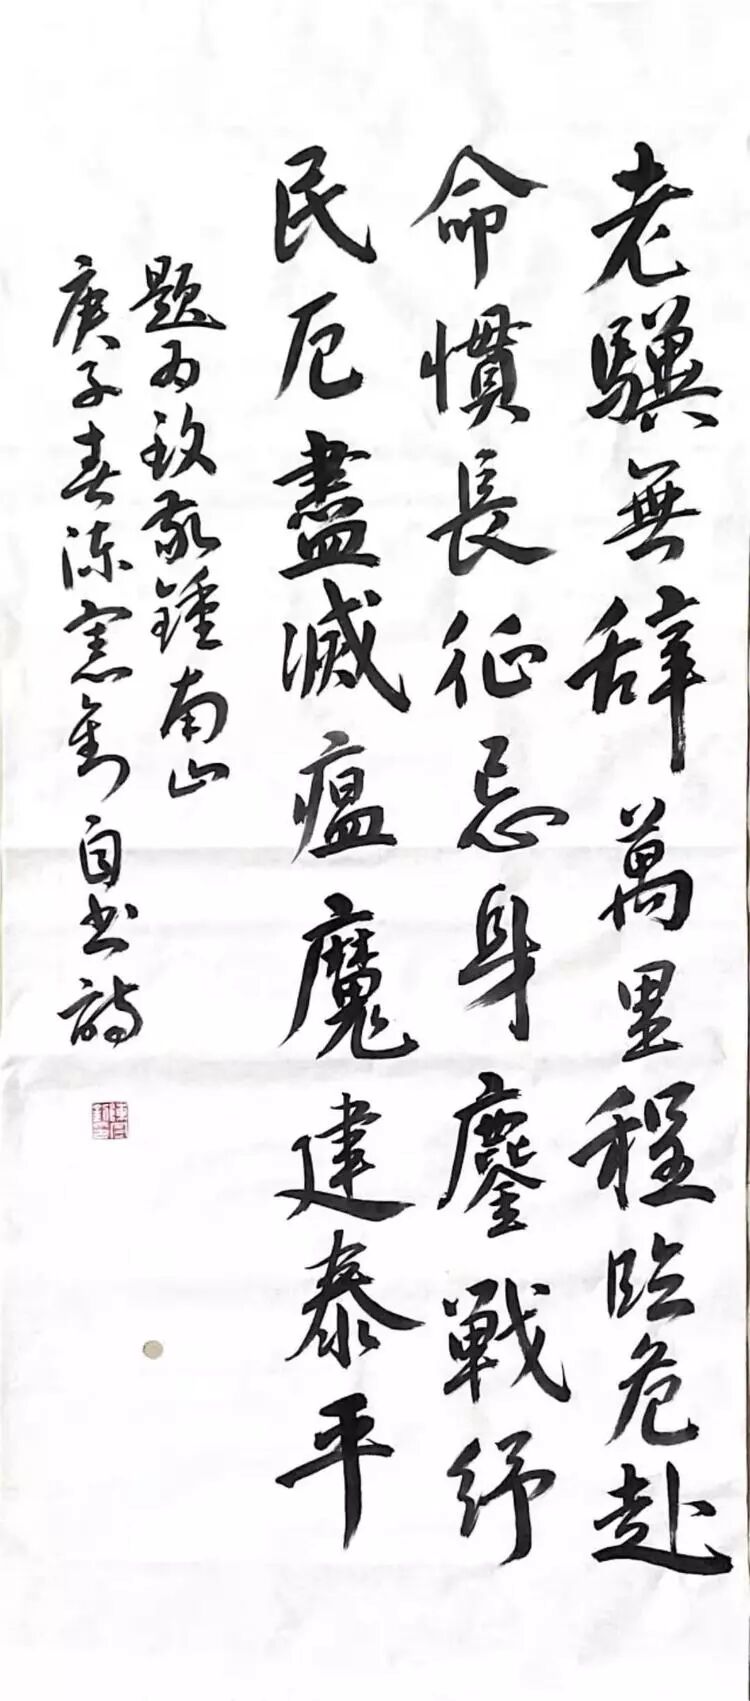 老驥無辞萬里程臨危赴
命慣長征忘身鏖戰紓
民厄盡滅瘟魔建泰平
題为致敬鍾南山
庚子春陈憲 自书詩